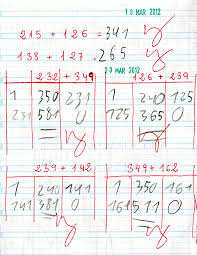 19 MAR 2012
215 + 126 = 341
138 + 127 = 265
20 MAR 2012
232 + 349 126 + 239
1 350 231 1 240 125
231 581 0 125 365 0
239 + 142 349 + 162
1 240 141 1 350 161
141 381 0 161 511 0